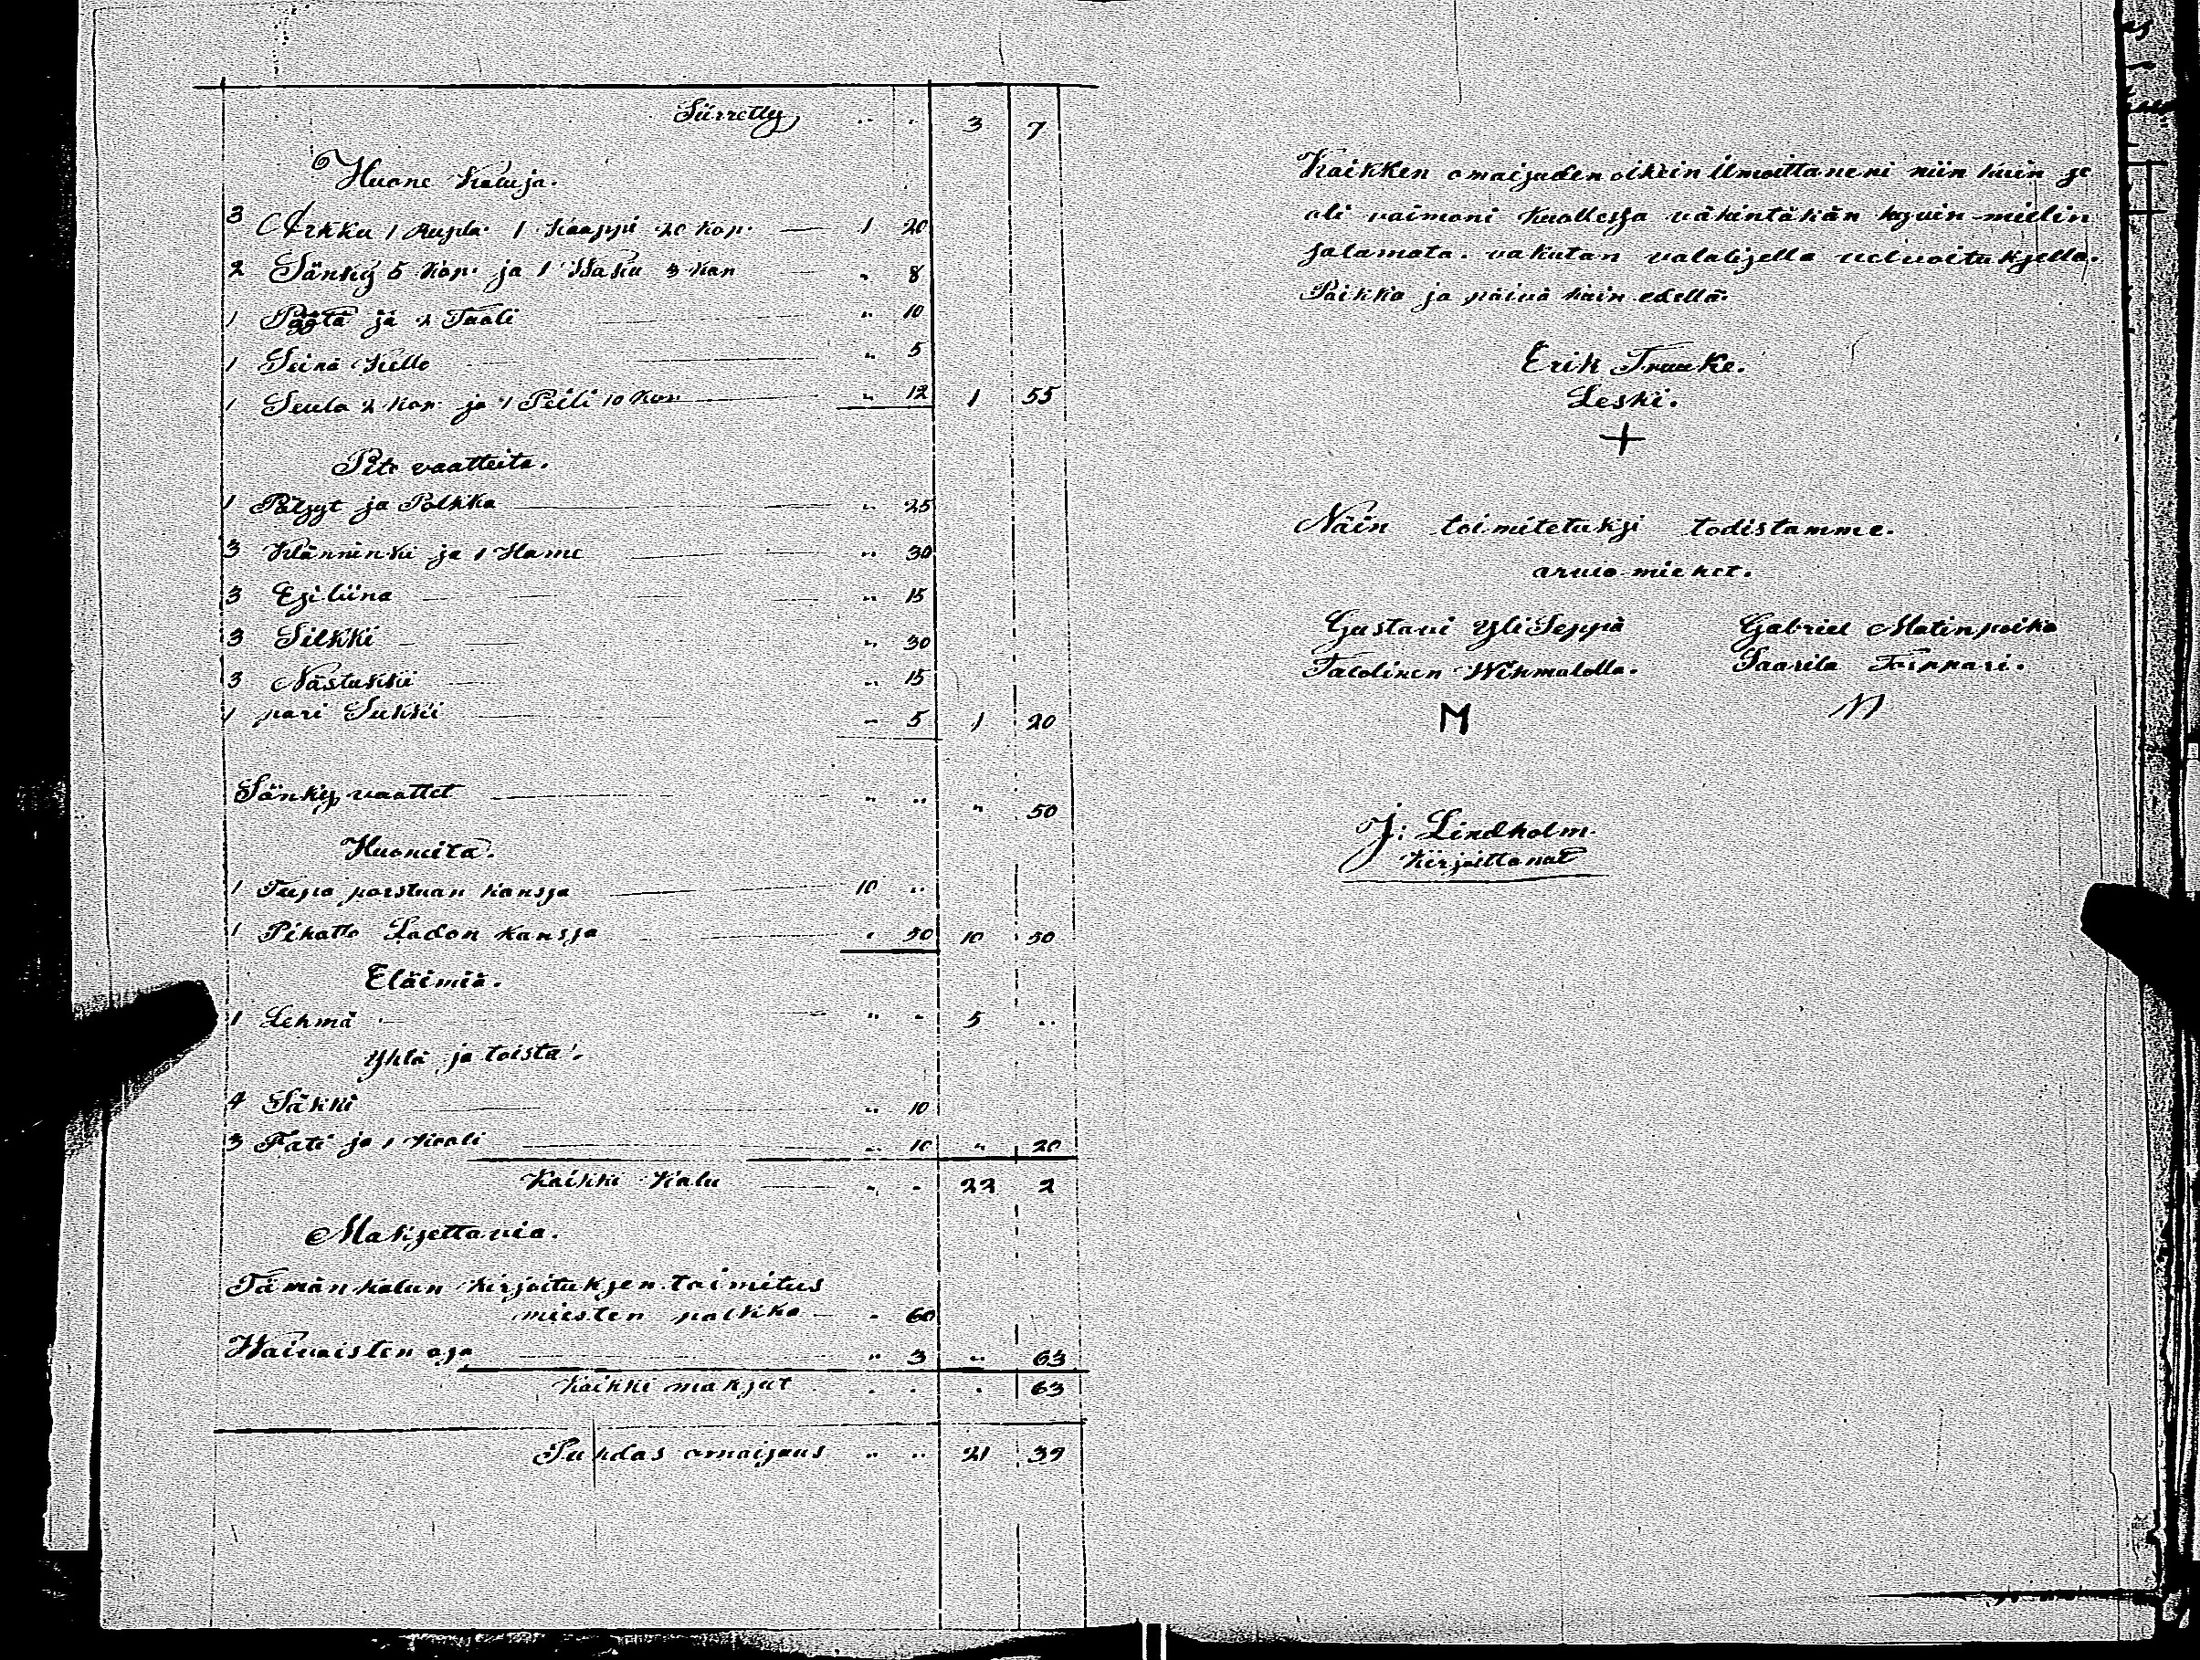 Siirretty " " 3 7
Huone Kaluja.
3 Arkku 1 Rupla 1 Kaappi 20 Kop. 1 20
2 Sänky 5 Kop. ja 1 3 Kop " 8
1 Pöytä ja 2 Tuoli " 10
1 Seinä Kello " 5
1 Seula 2 Kop. ja 1 Peili 10 Kop " 12 1 55
Pito vaatteita.
1 Pälsyt ja Polkka " 25
3 Klänninki ja 1 Hame " 30
3 Esiliina " 15
3 Silkki " 30
3 Nästukki " 15
1 pari Sukkii " 5 1 20
Sänky vaattet " " " 50
Huoneita.
1 Tupa porstuan kanssa 10 "
1 Pihatto Ladon kanssa " 50 10 50
Eläimiä.
1 Lehmä " " 5 "
Yhtä ja toista.
4 Säkki " 10
3 Fati ja 1 " 10 " 20
Kaikki Kalu " " 22 2
Maksettavia.
Tämän kalun kirjoituksen toimitus
miesten palkka " 60
Waivaisten osa " 3 " 63
Kaikki maksut " " " 63
Puhdas omaisuus " " 21 39
Kaikken omaisuden oikein ilmoittaneni niin kuin se
oli vaimoni kuollessa vähintäkän hyvin mielin
salamata. vakutan valalisella velvoituksella.
Paikka ja päivä kuin edellä.
Erik Truuke.
Leski.
+
Näin toimitetuksi todistamme.
arvio miehet.
Gustavi Yli Seppä Gabriel Matinpoika
Talolinen Wihmalolla. Saarila Torppari.
M M
J: Lindholm.
Kirjoittanut